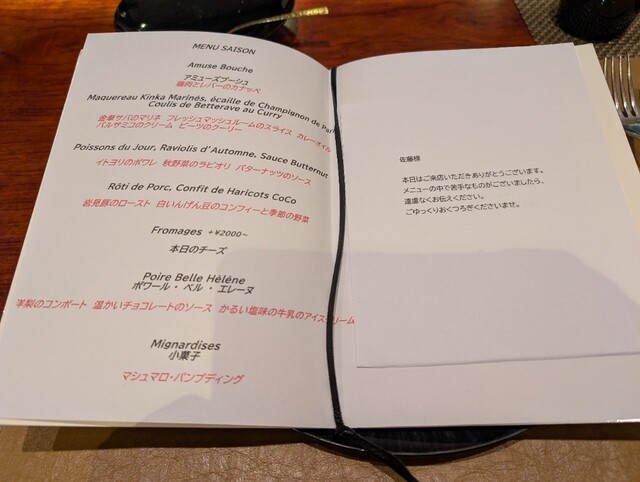 MENU SAISON
Amuse Bouche
アミューズブーシュ
鶏肉とレバーのカナッペ
Maquereau Kinka Marinés, écaille de Champignon de Pari
Coulis de Betterave au Curry
金華サバのマリネ フレッシュマッシュルームのスライス カレーオイル
バルサミコのクリーム ビーツのクーリー
Poissons du Jour, Raviolis d'Automne, Sauce Butternut
イトヨリのポワレ 秋野菜のラビオリ バターナッツのソース
Rôti de Porc, Confit de Haricots CoCo
岩見豚のロースト 白いんげん豆のコンフィーと季節の野菜
Fromages +¥2000~
本日のチーズ
Poire Belle Hélène
ポワール・ベル・エレーヌ
洋梨のコンポート 温かいチョコレートのソース かるい塩味の牛乳のアイスクリーム
Mignardises
小菓子
マシュマロ・パンプディング
佐藤様
本日はご来店いただきありがとうございます。
メニューの中で苦手なものがございましたら、
遠慮なくお伝えください。
ごゆっくりおくつろぎくださいませ。